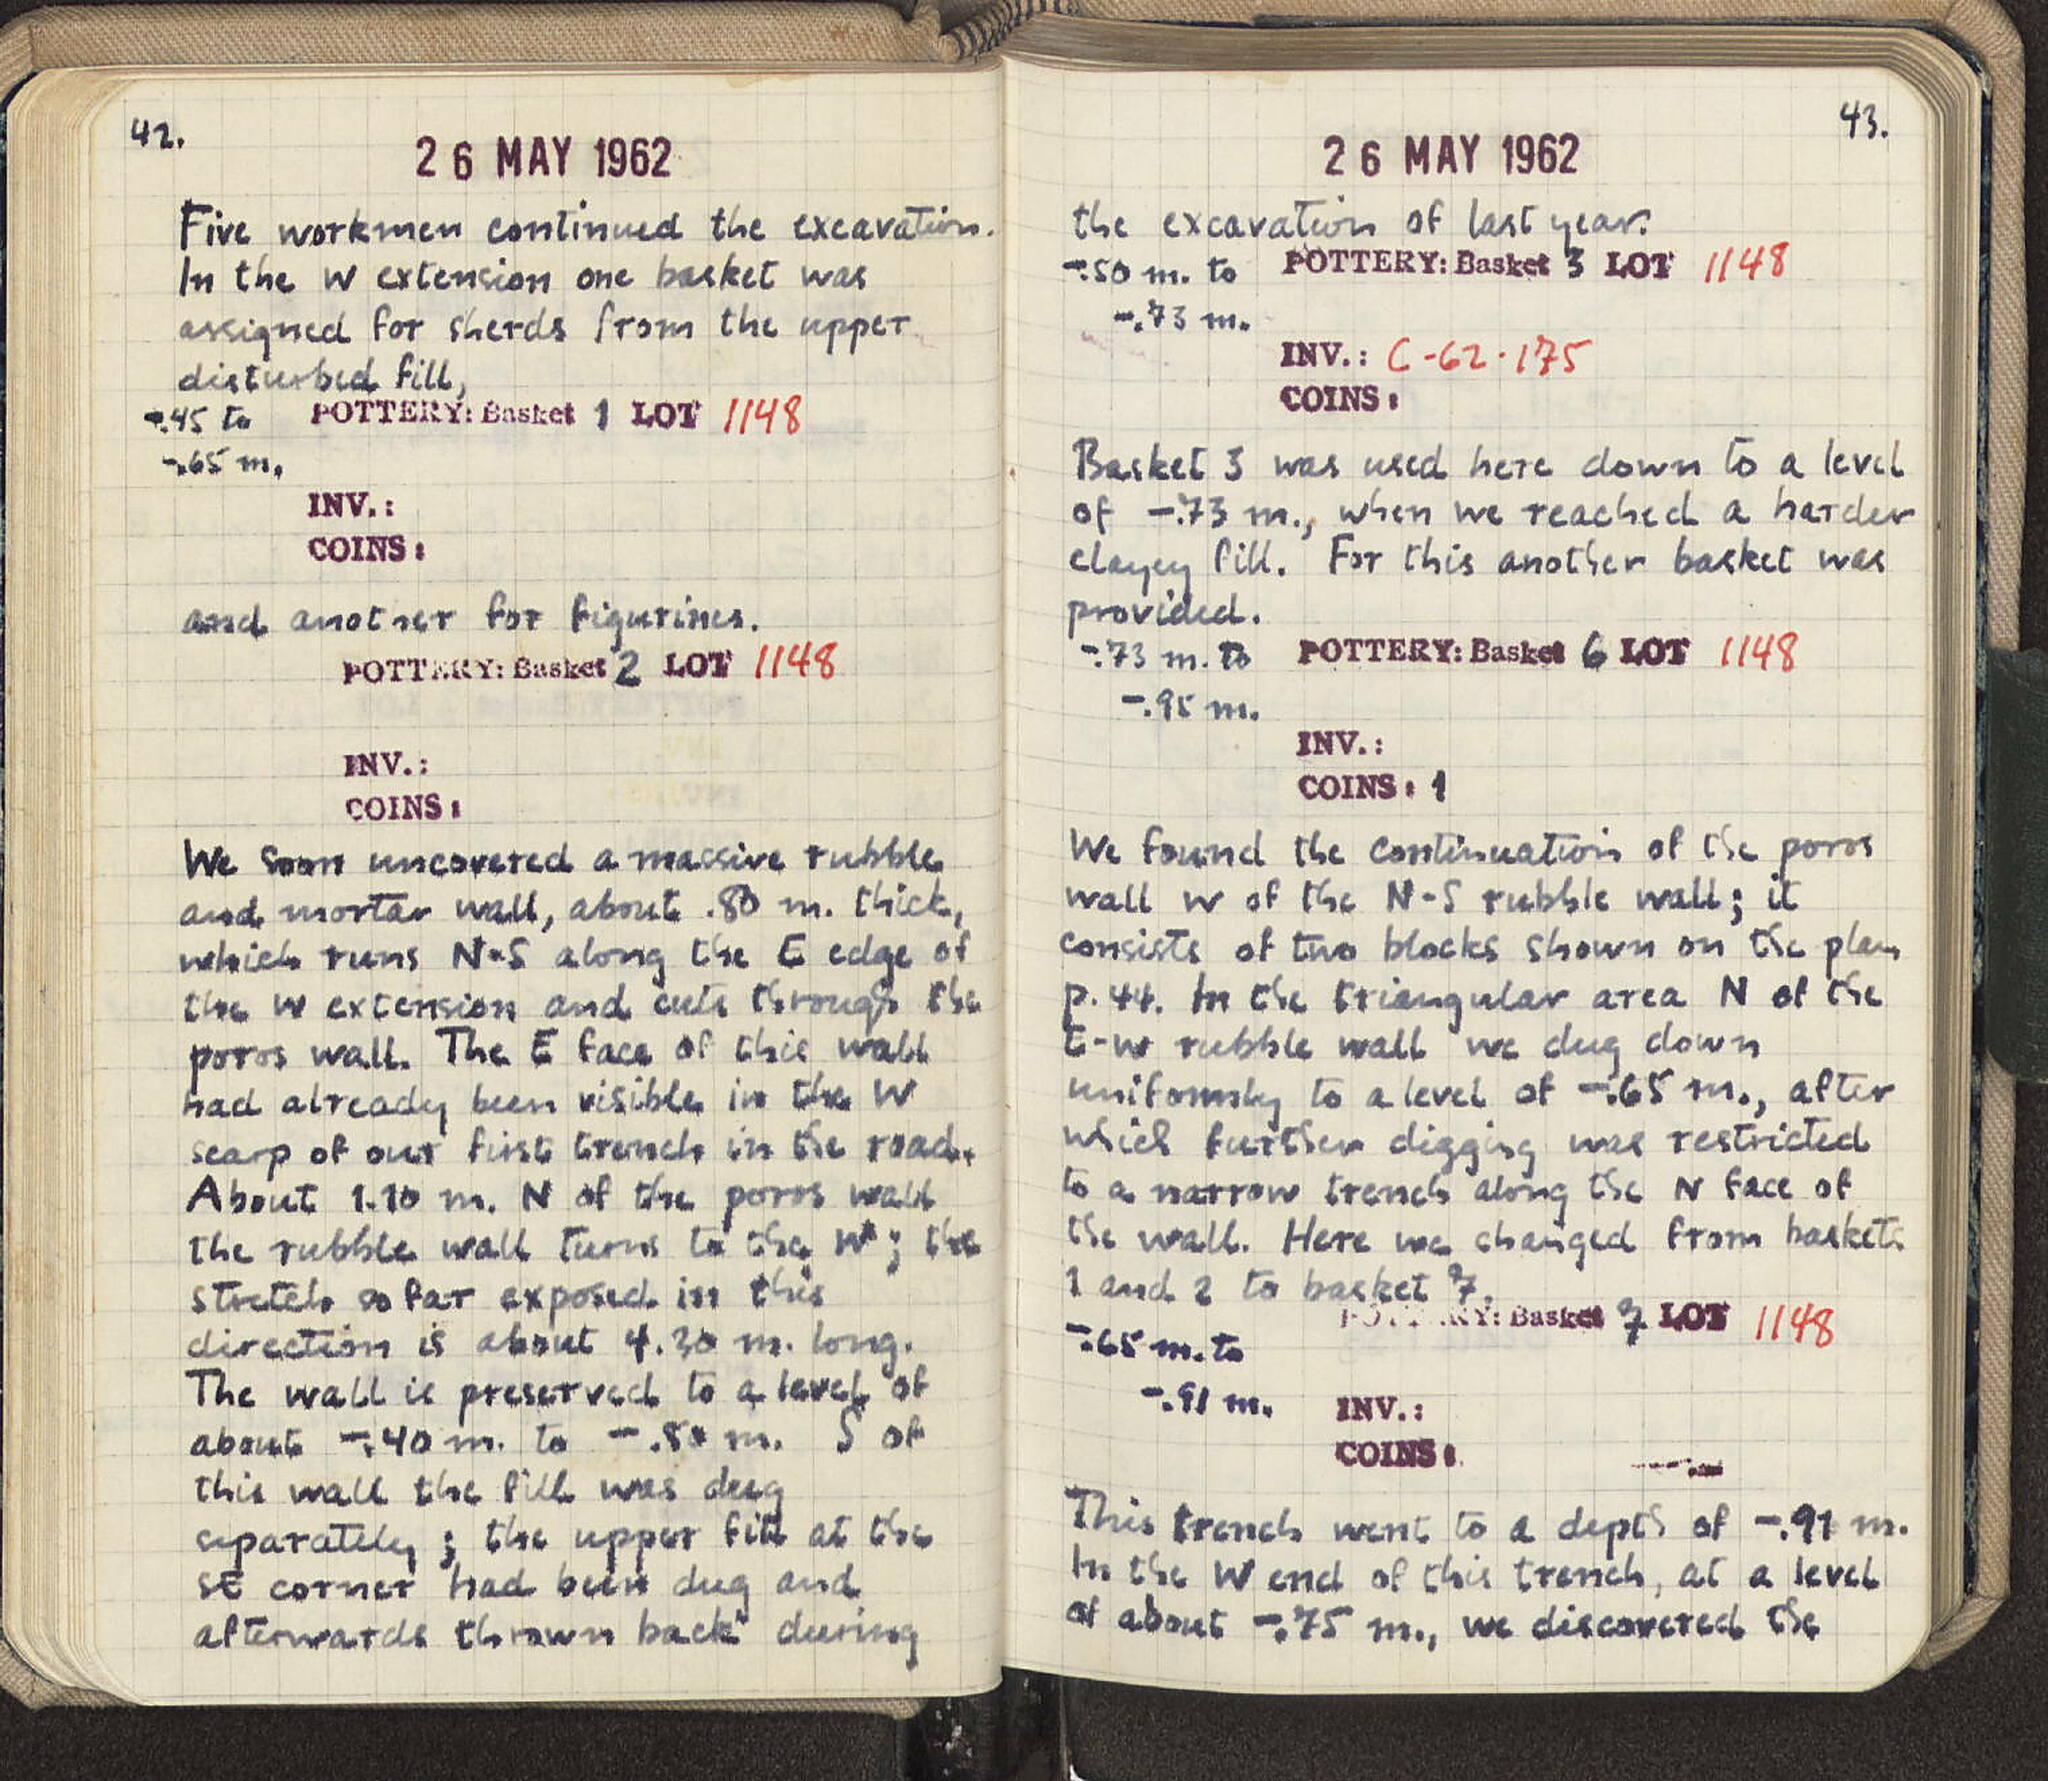 42.
26 MAY 1962
Five workmen continued the excavation.
In the W extension one basket was
assigned for sherds from the upper
disturbed fill,
-.45 to POTTERY: Basket 1 LOT 1148
-.65 m.
INV.:
COINS:
and another for figurines.
POTTERY: Basket 2 LOT 1148
INV.:
COINS:
We soon uncovered a massive rubble
and mortar wall, about .80 m. thick,
which runs N-S along the E edge of
the W extension and cuts through the
poros wall. The E face of this wall
had already been visible in the W
scarp of our first trench in the road.
About 1.10 m. N of the poros wall
the rubble wall turns to the W; the
stretch so far exposed in this
direction is about 4.30 m. long.
The wall is preserved to a level of
about -.40 m. to -.50 m. S of
this wall the fill was dug
separately; the upper fill at the
SE corner had been dug and
afterwards thrown back during
43.
26 MAY 1962
the excavation of last year.
-.50 m. to POTTERY: Basket 3 LOT 1148
-.73 m.
INV.: C-62-175
COINS:
Basket 3 was used here down to a level
of -.73 m., when we reached a harder
clayey fill. For this another basket was
provided.
-.73 m. to POTTERY: Basket 6 LOT 1148
-.95 m.
INV.:
COINS: 1
We found the continuation of the poros
wall W of the N-S rubble wall; it
consists of two blocks shown on the plan
p. 44. In the triangular area N of the
E-W rubble wall we dug down
uniformly to a level of -.65 m., after
which further digging was restricted
to a narrow trench along the N face of
the wall. Here we changed from baskets
1 and 2 to basket 7.
POTTERY: Basket 7 LOT 1148
-.65 m. to
-.91 m. INV.:
COINS:
This trench went to a depth of -.91 m.
In the W end of this trench, at a level
of about -.75 m., we discovered the